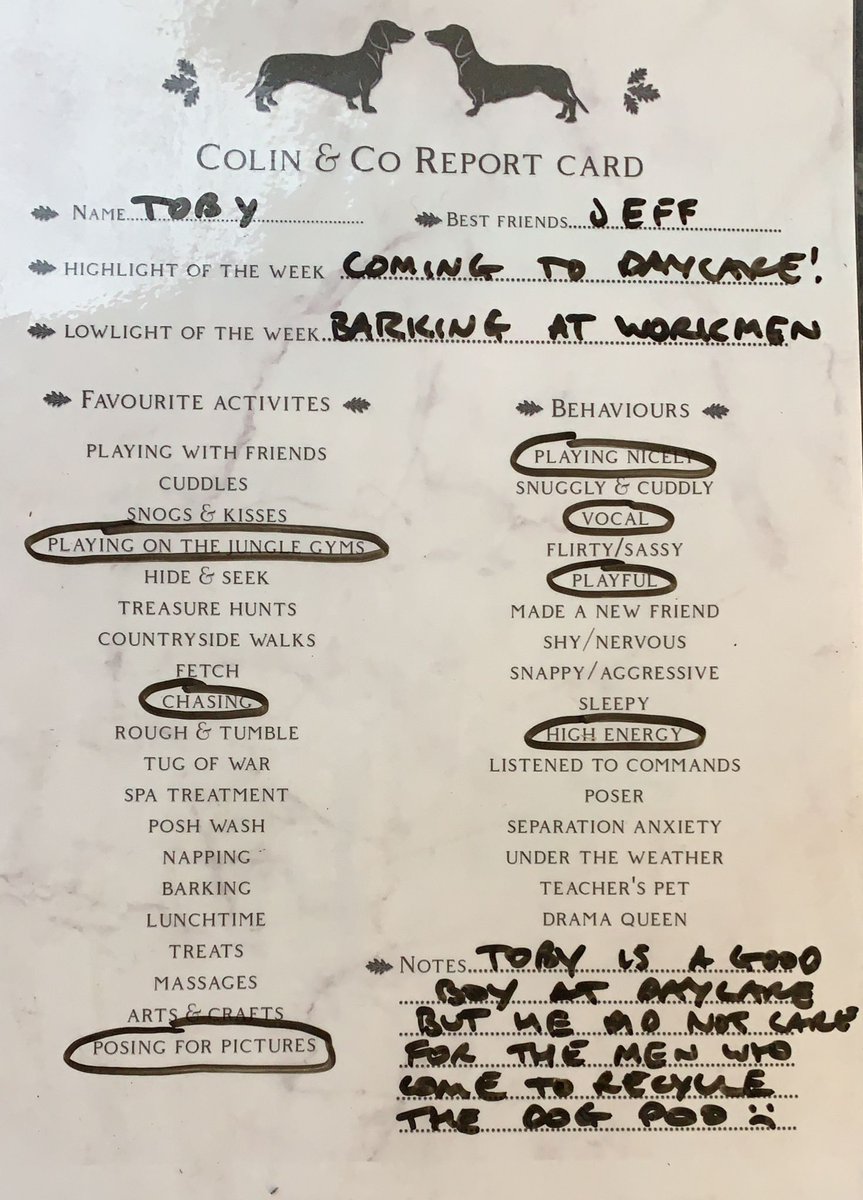 COLIN & CO REPORT CARD
NAME TOBY
BEST FRIENDS JEFF
HIGHLIGHT OF THE WEEK COMING TO DAYCARE!
LOWLIGHT OF THE WEEK BARKING AT WORKMEN
FAVOURITE ACTIVITES
PLAYING WITH FRIENDS
CUDDLES
SNOGS & KISSES
PLAYING ON THE JUNGLE GYMS
HIDE & SEEK
TREASURE HUNTS
COUNTRYSIDE WALKS
FETCH
CHASING
ROUGH & TUMBLE
TUG OF WAR
SPA TREATMENT
POSH WASH
NAPPING
BARKING
LUNCHTIME
TREATS
MASSAGES
ARTS & CRAFTS
POSING FOR PICTURES
BEHAVIOURS
PLAYING NICELY
SNUGGLY & CUDDLY
VOCAL
FLIRTY/SASSY
PLAYFUL
MADE A NEW FRIEND
SHY/NERVOUS
SNAPPY/AGGRESSIVE
SLEEPY
HIGH ENERGY
LISTENED TO COMMANDS
POSER
SEPARATION ANXIETY
UNDER THE WEATHER
TEACHER'S PET
DRAMA QUEEN
NOTES TOBY IS A GOOD
BOY AT DAYCARE
BUT HE DID NOT CARE
FOR THE MEN WHO
COME TO RECYCLE
THE DOG POO